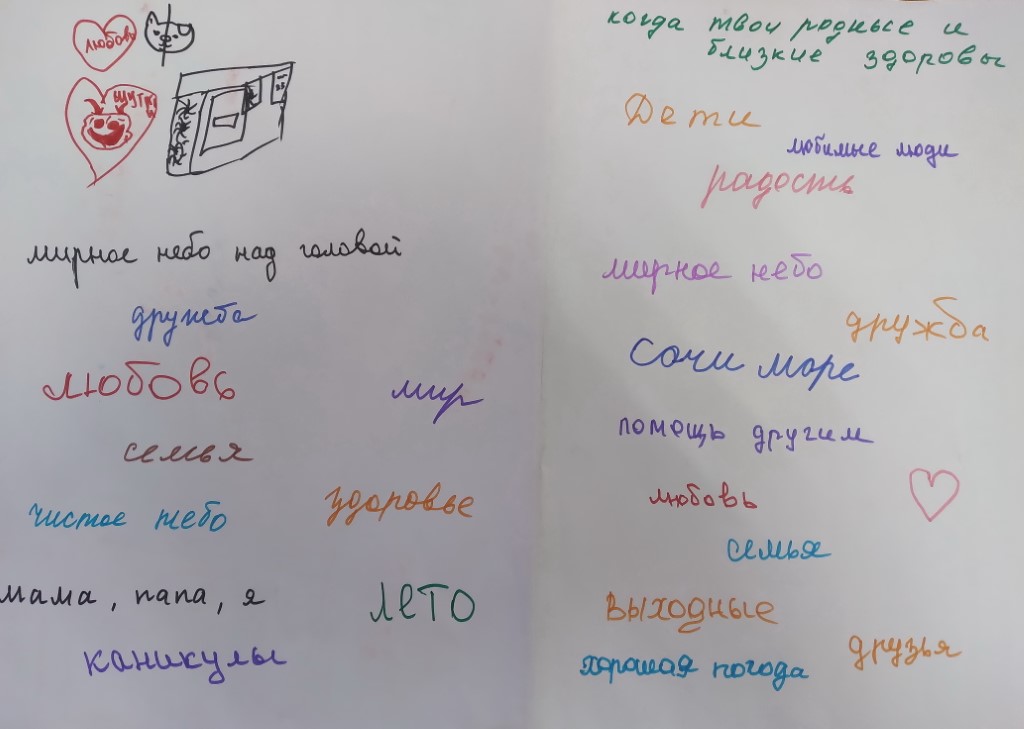 любовь
шутки
мирное небо над головой
дружба
любовь
мир
семья
чистое небо
здоровье
мама, папа, я
лето
каникулы
когда твои родные и
близкие здоровы
Дети
любимые люди
радость
мирное небо
дружба
Сочи море
помощь другим
любовь
семья
выходные
друзья
хорошая погода